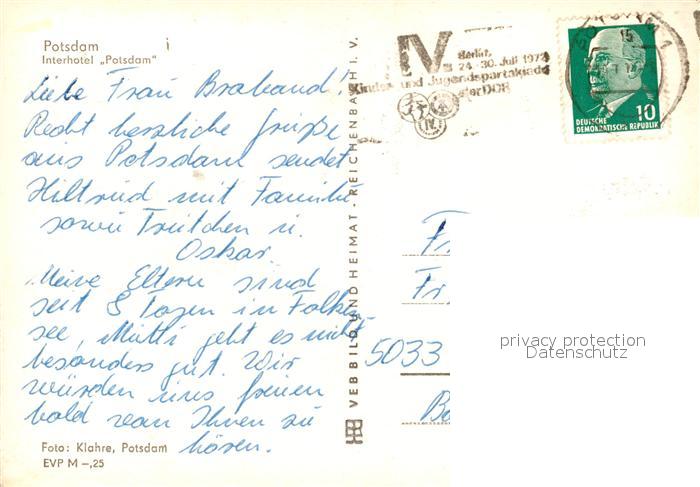 Potsdam
Interhotel „Potsdam"
Liebe Frau Braband!
Recht herzliche Grüße
aus Potsdam sendet
Hiltrud mit Familie
sowie Trutchen u.
Oskar.
Meine Eltern sind
seit 8 Tagen in Falken
see, Mutti geht es nicht
besonders gut. Wir
würden uns freuen
bald von Ihnen zu
hören.
Foto: Klahre, Potsdam
EVP M –,25
VEB BILD UND HEIMAT · REICHENBACH I. V.
IV
Berlin,
24.-30. Juli 1972
Kinder- und Jugendspartakiade
der DDR
15
10
DEUTSCHE
DEMOKRATISCHE REPUBLIK
Fr
5033
privacy protection
Datenschutz